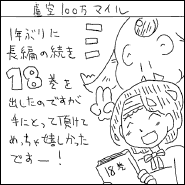 虚空100万マイル
1年ぶりに
長編の続き
18巻を
出したのですが
手にとって頂けて
めっちゃ嬉しかった
ですー!
18巻